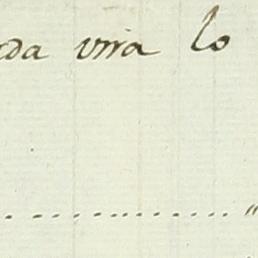 da viva lo
.................. "